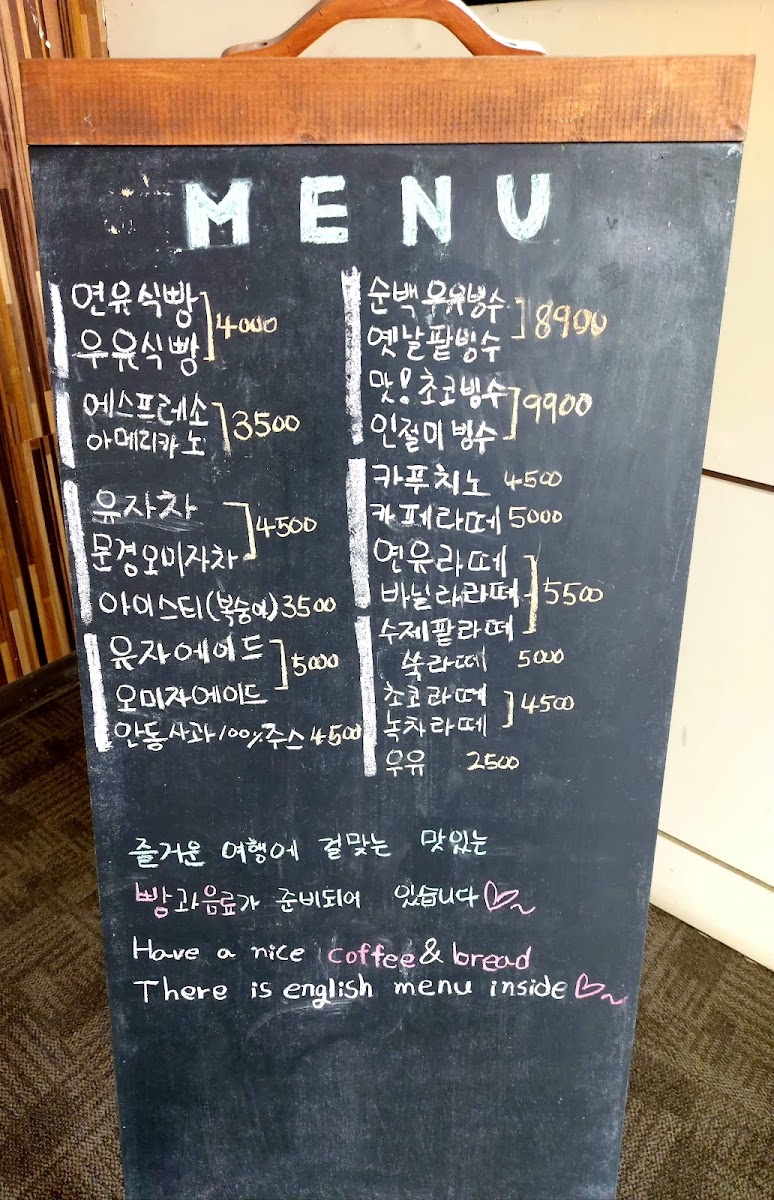 MENU
연유식빵
우유식빵
4000
에스프레소
아메리카노
3500
유자차
문경오미자차
4500
아이스티(복숭아) 3500
유자에이드
오미자에이드
5000
안동사과100%주스 4500
순백우유빙수
옛날팥빙수
8900
맛!초코빙수
인절미빙수
9900
카푸치노 4500
카페라떼 5000
연유라떼
바닐라라떼
수제팥라떼
5500
쑥라떼 5000
초코라떼
녹차라떼
4500
우유 2500
즐거운 여행에 걸맞는 맛있는
빵과음료가 준비되어 있습니다♡~
Have a nice coffee & bread
There is english menu inside ♡~